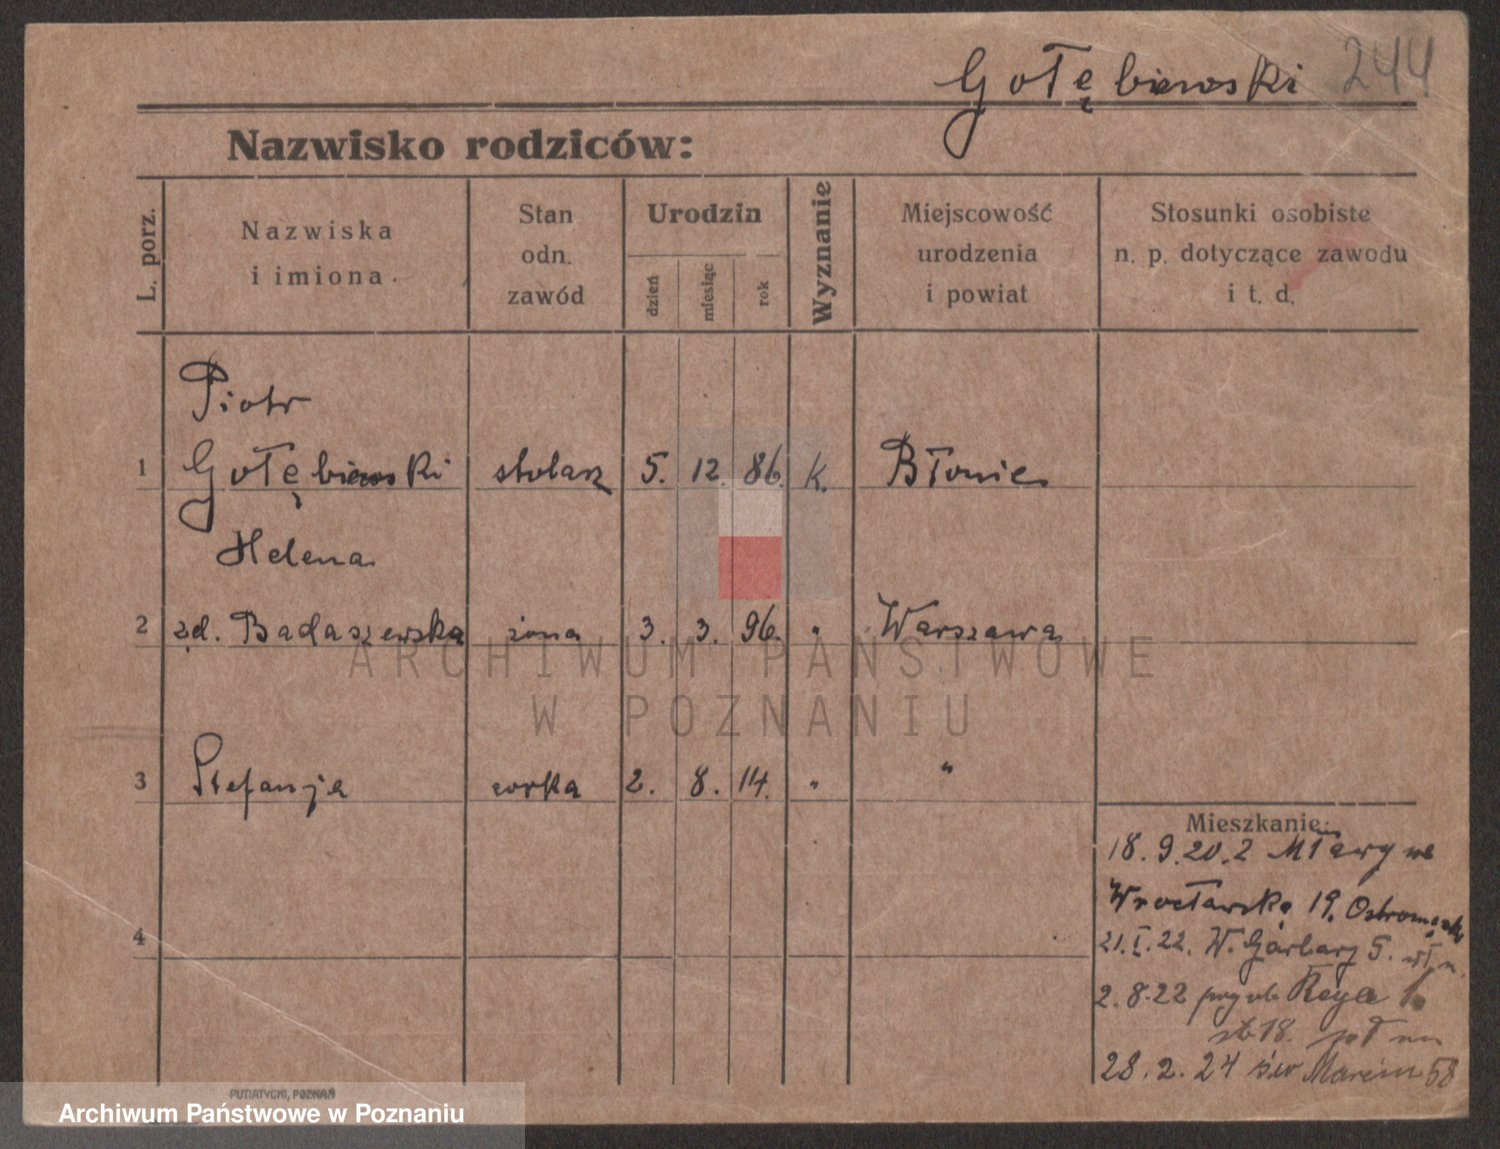 Gołębiewski 244
Nazwisko rodziców:
L. porz.
Nazwiska
i imiona.
Stan
odn.
zawód
Urodzin
dzień
miesiąc
rok
Wyznanie
Miejscowość
urodzenia
i powiat
Stosunki osobiste
n. p. dotyczące zawodu
i t. d.
Piotr
1 Gołębiewski stolarz 5. 12. 86. K. Błonie
Helena
2 zd. Badaszewska żona 3. 3. 96. " Warszawa
3 Stefanja córka 2. 8. 14. " "
4
Mieszkanie:
18. 9. 20. z Mławy na
Wrocławską 19.
21. I. 22. W. Garbary 5.
2. 8. 22 Reya 1.
18.
28. 2. 24 św Marcin 58
PUTIATYCKI, POZNAŃ
ARCHIWUM PAŃSTWOWE
W POZNANIU
Archiwum Państwowe w Poznaniu